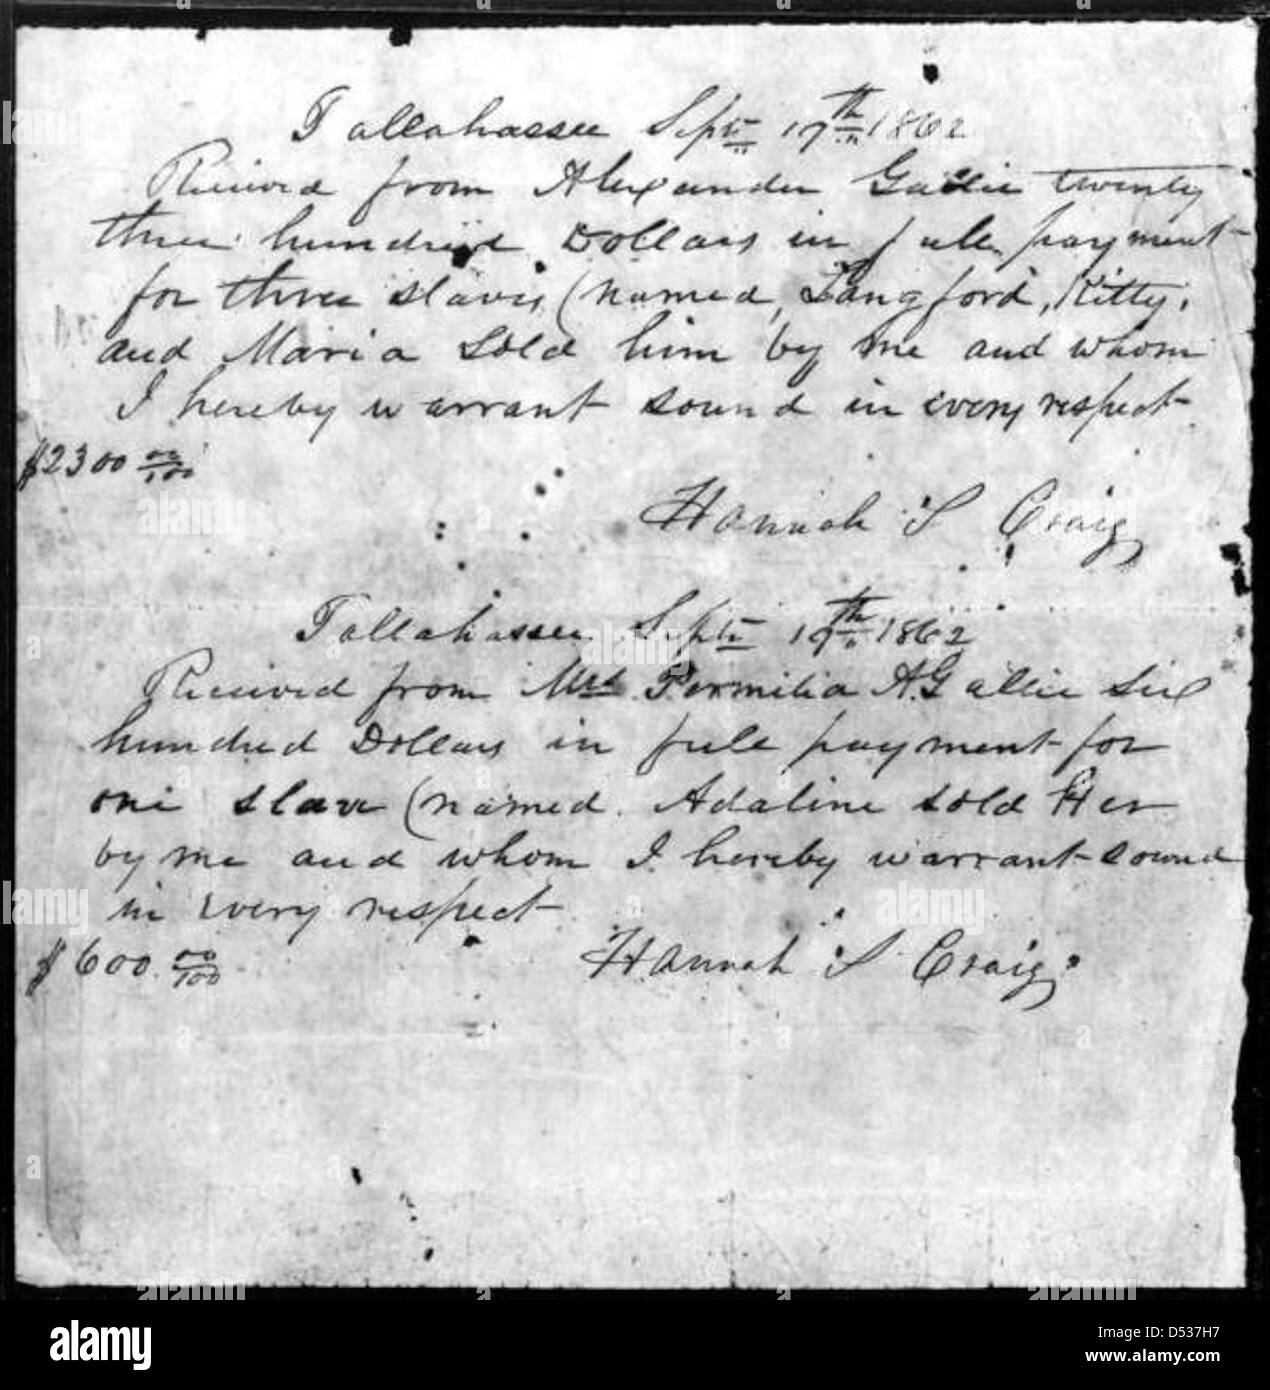 Tallahassee Sept 17th 1862
Received from Alexander Gallie twenty
three hundred Dollars in full payment
for three slaves, (named, Langford, Kitty,
and Maria sold him by me and whom
I hereby warrant sound in every respect
$2300 00/100
Hannah S Craig
Tallahassee Sept 17th 1862
Received from Mrs Permilia A. Gallie Six
hundred Dollars in full payment for
one slave (named. Adaline sold Her
by me and whom I hereby warrant sound
in every respect
$600. 00/100
Hannah S Craig
alamy
Image ID: D537H7
www.alamy.com